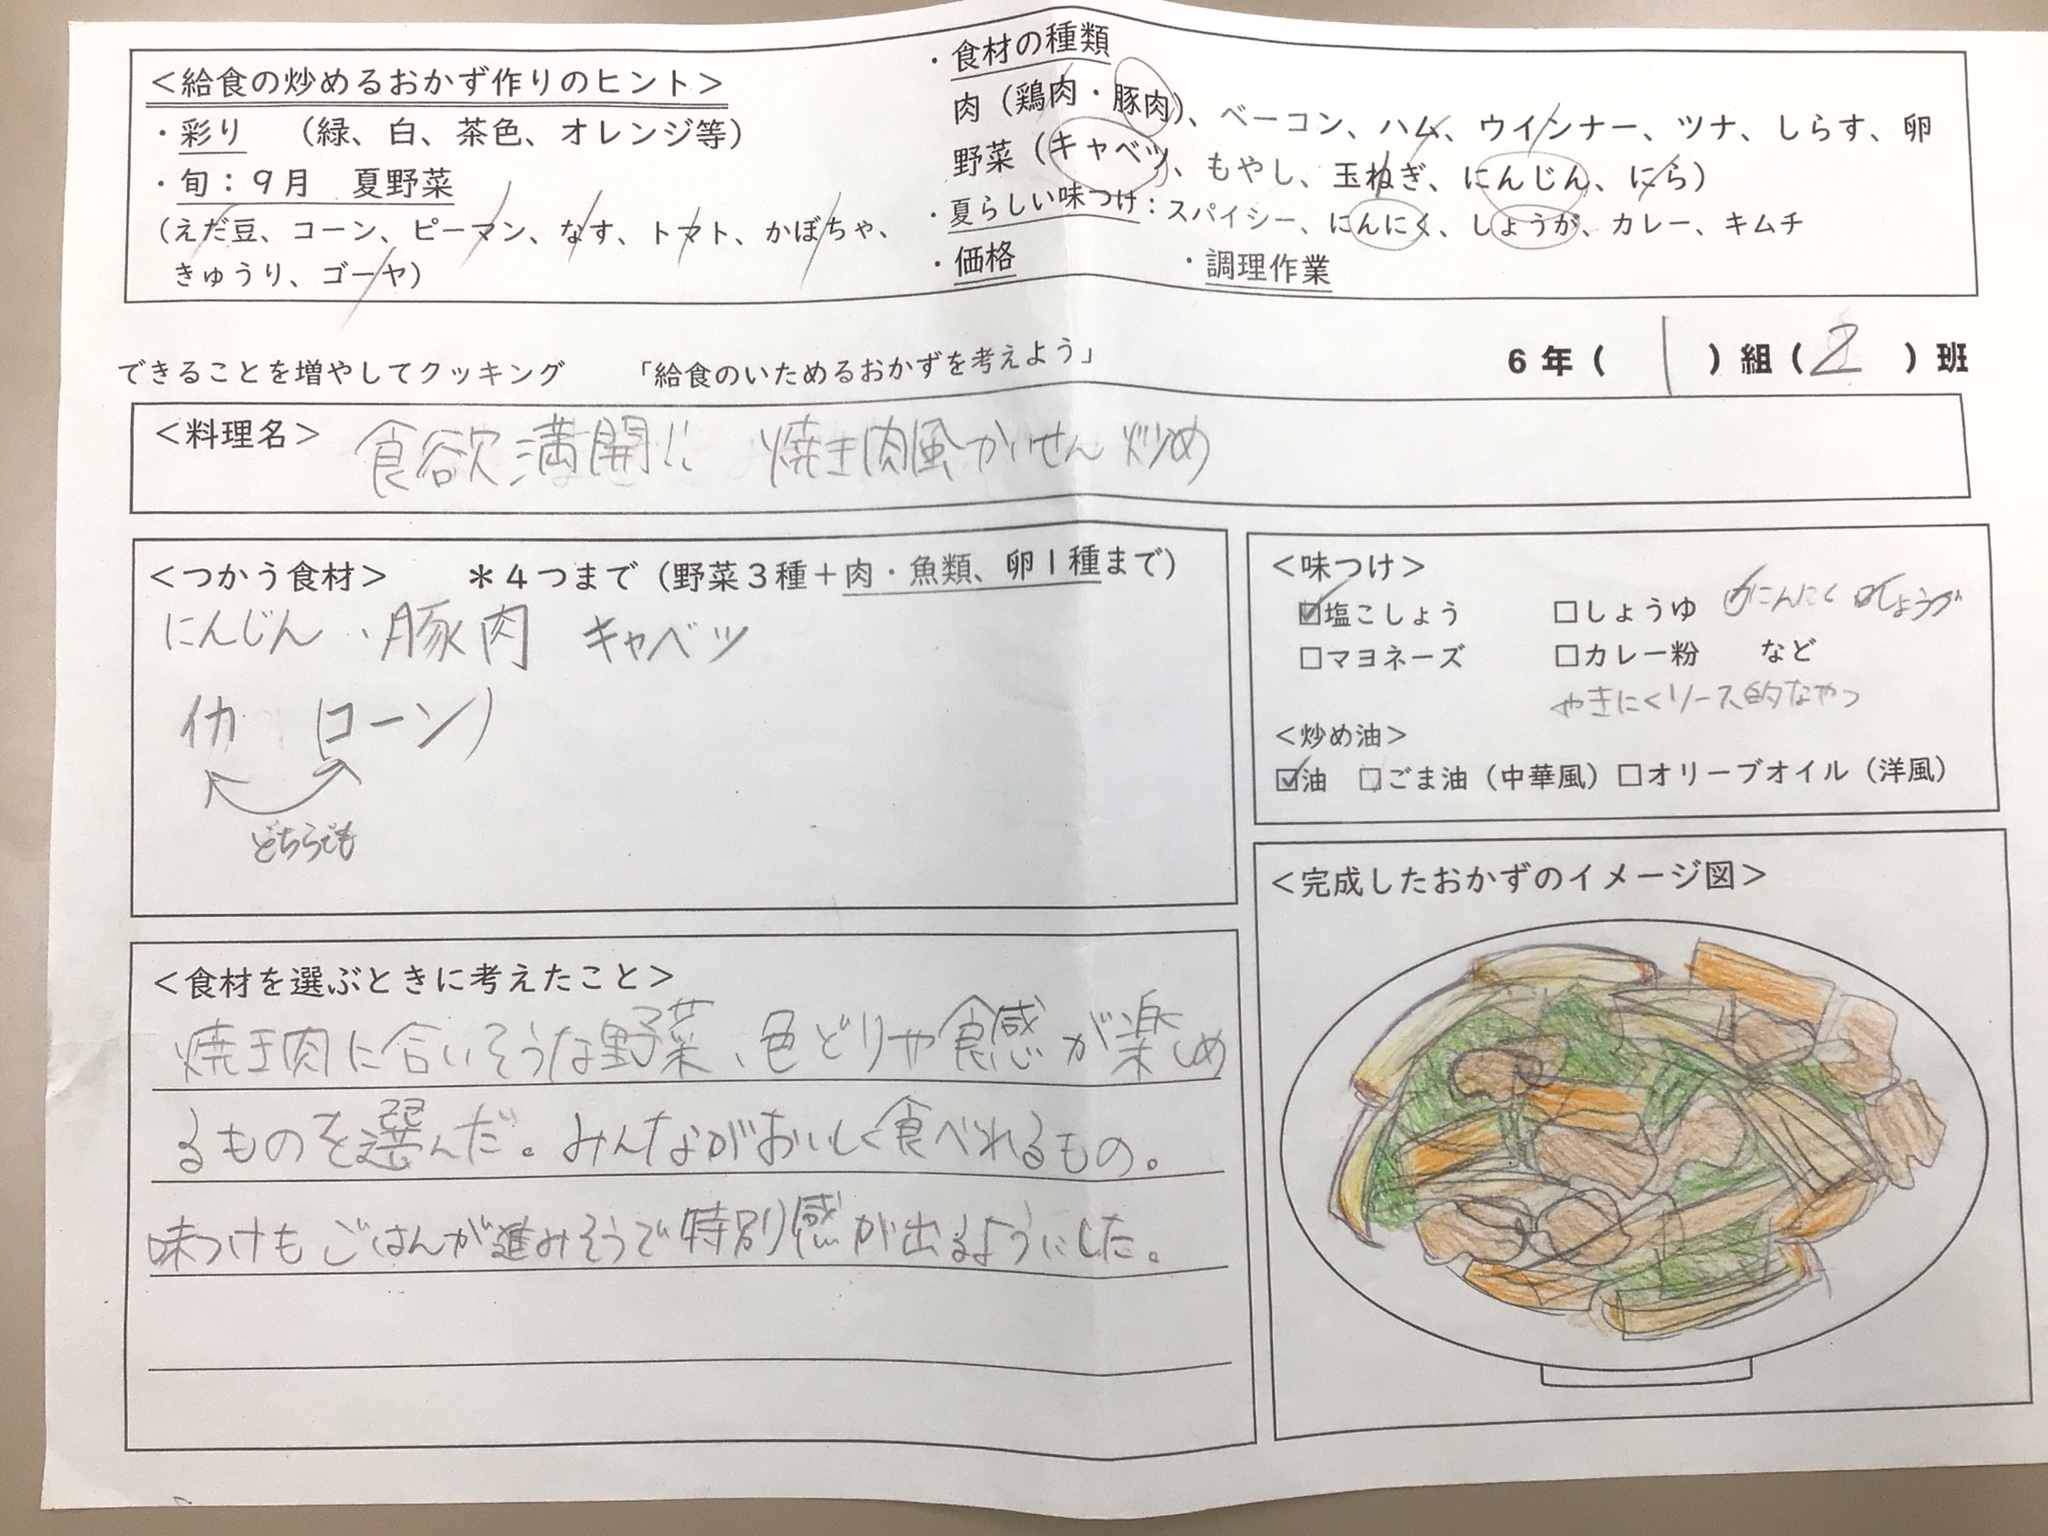 <給食の炒めるおかず作りのヒント>
・彩り (緑、白、茶色、オレンジ等)
・旬：9月 夏野菜
(えだ豆、コーン、ピーマン、なす、トマト、かぼちゃ、
きゅうり、ゴーヤ)
・食材の種類
肉（鶏肉・豚肉）、ベーコン、ハム、ウインナー、ツナ、しらす、卵
野菜（キャベツ、もやし、玉ねぎ、にんじん、にら）
・夏らしい味つけ：スパイシー、にんにく、しょうが、カレー、キムチ
・価格 ・調理作業
できることを増やしてクッキング 「給食のいためるおかずを考えよう」
6年( 1 )組( 2 )班
<料理名> 食欲満開!! 焼き肉風かいせん炒め
<つかう食材> ＊4つまで（野菜3種＋肉・魚類、卵1種まで）
にんじん、豚肉 キャベツ
イカ (コーン)
どちらでも
<味つけ>
☑塩こしょう □しょうゆ ☑にんにく ☑しょうが
□マヨネーズ □カレー粉 など
やきにくソース的なやつ
<炒め油>
☑油 □ごま油（中華風）□オリーブオイル（洋風）
<食材を選ぶときに考えたこと>
焼き肉に合いそうな野菜、色どりや食感が楽しめ
るものを選んだ。みんながおいしく食べれるもの。
味つけもごはんが進みそうで特別感が出るようにした。
<完成したおかずのイメージ図>